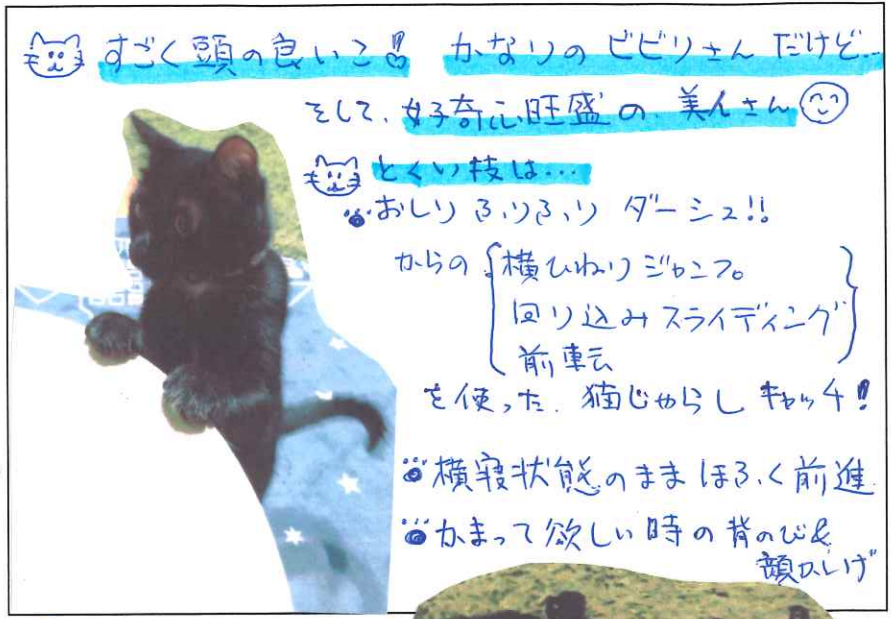 すごく頭の良いこ!! かなりのビビリさんだけど…
そして、好奇心旺盛の美人さん
とくい技は…
おしりふりふりダーシュ!!
からの{横ひねりジャンプ。
回り込みスライディング
前転}
を使った、猫じゃらしキャッチ!
横寝状態のままほふく前進
かまって欲しい時の背のび&
顔かしげ